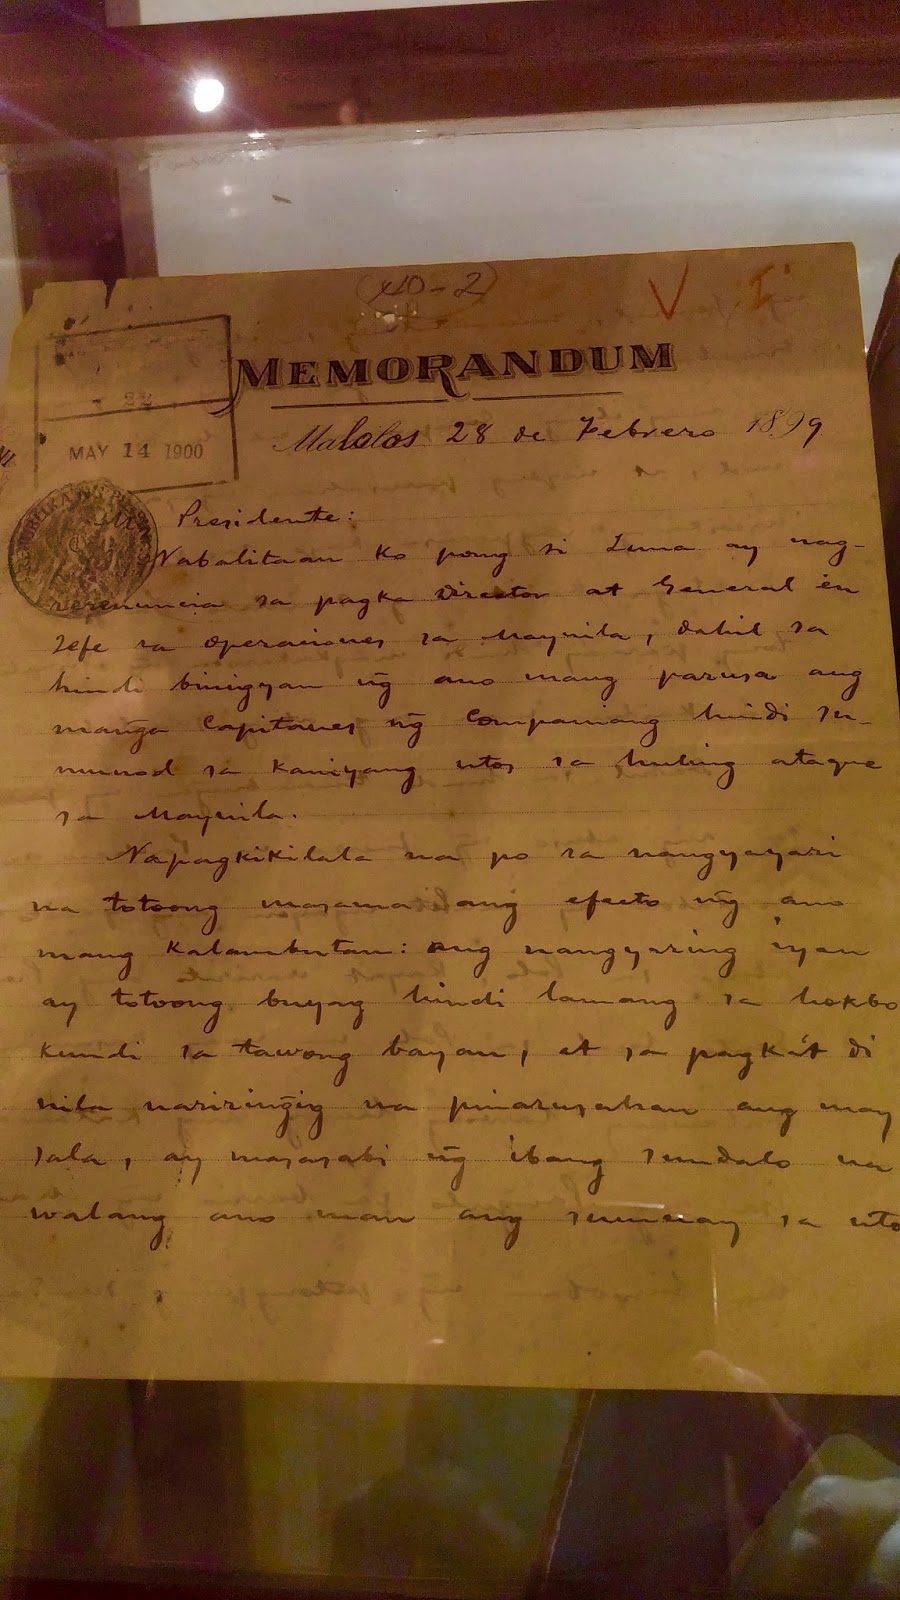 (XO-2)
V I
MEMORANDUM
MAY 14 1900
Malolos 28 de Febrero 1899
Presidente:
Nabalitaan ko pong si Luna ay nag-
renuncia sa pagka Director at General en
Jefe sa operaciones sa Maynila, dahil sa
hindi binigyan ng̃ ano mang parusa ang
mang̃a Capitanes ng̃ Compañiang hindi su-
munod sa kaniyang utos sa huling ataque
sa Maynila.
Napagkikilala na po sa nangyayari
na totoong masama ang efecto ng̃ ano
mang kalambutan: ang nangyaring iyan
ay totoong buyag hindi lamang sa hokbo
kundi sa tawong bayan, at sa pagkát di
nila nariring̃ig na pinarusahan ang may
sala, ay masasabi ng̃ ibang sundalo na
walang ano man ang sumuay sa uto